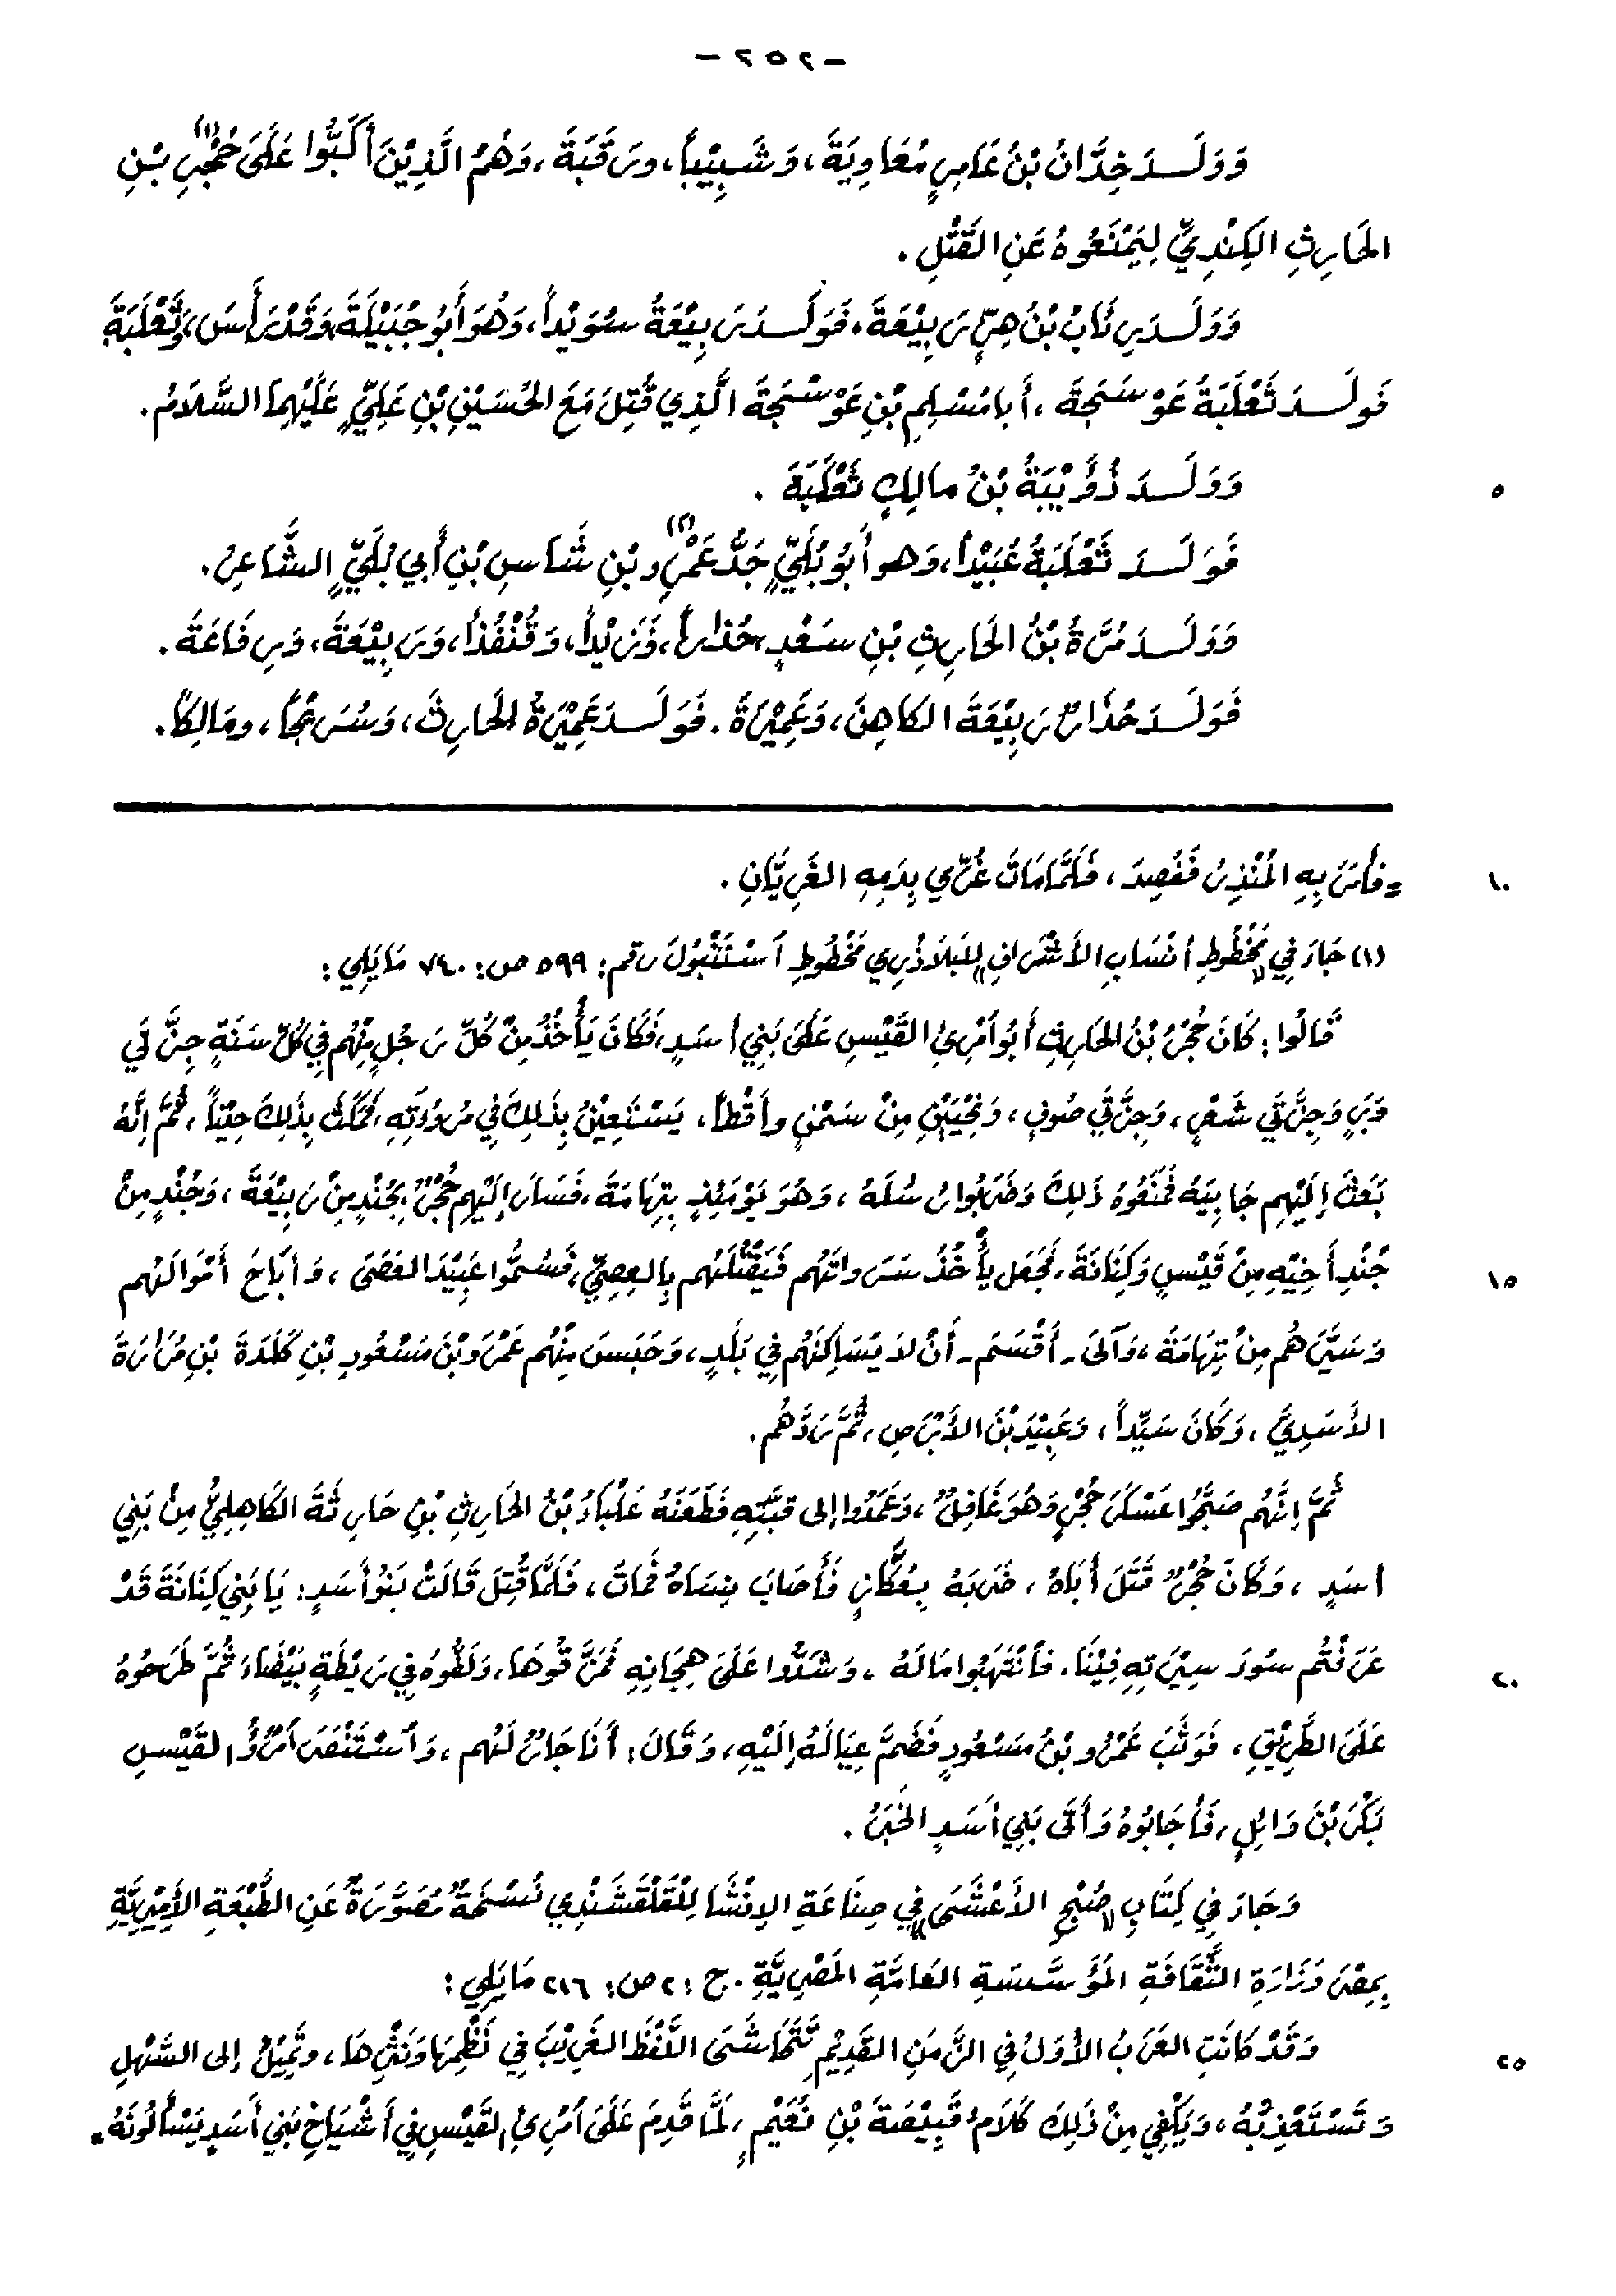 - ٢٥٢ -
وَوَلَدَ خِدَّانُ بْنُ عَامِرٍ مُعَاوِيَةَ، وَشَبِيْباً، ورَقَبَةَ، وَهُمُ الَّذِيْنَ أَكَبُّوا عَلَى حُجْرِ(١) بْنِ
الحَارِثِ الكِنْدِيِّ لِيَمْنَعُوهُ عَنِ القَتْلِ .
وَوَلَدَ رِئَابُ بْنُ هِرٍّ رَبِيْعَةَ، فَوَلَدَ رَبِيْعَةُ سُوَيْداً، وَهُوَ أَبُو جُبَيْلَةَ، وَقَدْ رَأَسَ، وَثَعْلَبَةَ
فَولَدَ ثَعْلَبَةُ عَوْسَجَةَ، أَبا مُسْلِمِ بْنِ عَوْسَجَةَ الَّذِي قُتِلَ مَعَ الحُسَيْنِ بْنِ عَلِيٍّ عَلَيْهِمَا السَّلَامُ .
وَوَلَدَ ذُؤَيْبَةُ بْنُ مالِكٍ ثَعْلَبَةَ . ٥
فَوَلَدَ ثَعْلَبَةُ عُبَيْداً، وَهو أَبُو بُلَيٍّ جَدُّ عَمْرِو(٢) بْنِ شَاسِ بْنِ أَبي بُلَيٍّ الشَّاعِرُ .
وَوَلَدَ مُرَّةُ بْنُ الحَارِثِ بْنِ سَعْدٍ، حُذَاراً، وَزَيْداً، وَقُنْفُذاً، وَرَبِيْعَةَ، وَرِفَاعَةَ .
فَوَلَدَ حُذَارٌ رَبِيْعَةَ الكاهِنَ، وَعَمِيْرَةَ . فَوَلَدَ عَمِيْرَةُ الحَارِثَ، وَسُرَيْجاً، ومَالِكاً .
= فأَمَرَ بِهِ المُنْذِرُ فَفُصِدَ، فَلَمَّا مَاتَ غُرِّي بِدَمِهِ الغَرِيَّانِ . ١٠
(١) جَاءَ فِي مَخْطُوطِ «أنْسَابِ الأَشْرَافِ» لِلبَلَاذُرِي مَخْطُوطِ آسْتَنْبُولَ رقم: ٥٩٩ ص: ٧٤٠ مَا يَلِي:
قَالُوا: كَانَ حُجْرُ بْنُ الحَارِثِ أَبُو آمْرِئِ القَيْسِ عَلَى بَنِي أسَدٍ، فَكَانَ يَأْخُذُ مِنْ كُلِّ رَجُلٍ مِنْهُم فِي كُلِّ سَنَةٍ جِزَّتَي
وَبَرٍ وَجِزَّتَي شَعْرٍ، وَجِزَّتَي صُوفٍ، وَنِحْيَيْنِ مِنْ سَمْنٍ وأقْطاً، يَسْتَعِيْنُ بِذَلِكَ فِي مُرُوءَتِهِ، فَمَكَثَ بِذَلِكَ حِيْناً، ثُمَّ إنَّهُ
بَعَثَ إلَيْهِم جَابِيَهُ فَمَنَعُوهُ ذَلِكَ وَضَرَبُوا رُسُلَهُ، وَهُوَ يَوْمَئِذٍ بِتِهَامَةَ، فَسَارَ إلَيْهِم حُجْرٌ بِجُنْدٍ مِنْ رَبِيْعَةَ، وَجُنْدٍ مِنْ
جُنْدِ أَخِيْهِ مِنْ قَيْسٍ وَكِنَانَةَ، فَجَعَل يَأْخُذُ سَرَواتَهُم فَيَقْتُلُهُم بِالعِصِيِّ، فَسُمُّوا عَبِيْدَ العَصَى، وَأبَاحَ أَمْوَالَهُم ١٥
وَسَيَّرَهُم مِنْ تِهَامَةَ، وَآلَى - أَقْسَمَ - أَنْ لا يُسَاكِنَهُم فِي بَلَدٍ، وَحَبَسَ مِنْهُم عَمْرَو بْنَ مَسْعُودِ بْنِ كَلَدَةَ بْنِ مُرَارَةَ
الأَسَدِيَّ، وَكَانَ سَيِّداً، وَعَبِيْدَ بْنَ الأَبْرَصِ، ثُمَّ رَدَّهُم .
ثُمَّ إنَّهُم صَبَّحُوا عَسْكَرَ حُجْرٍ وَهُوَ غَافِلٌ، وَعَمَدُوا إلى قبَّتِهِ فَطَعَنَهُ عَلْبَاءُ بْنُ الحَارِثِ بْنِ حَارِثَةَ الكَاهِلِيُّ مِنْ بَنِي
أسَدٍ، وَكَانَ حُجْرٌ قَتَلَ أَبَاهُ، ضَرَبَهُ بِعُكَّازٍ فَأَصَابَ نِسَاهُ فَمَاتَ، فَلَمَّا قُتِلَ قَالَتْ بَنُو أَسَدٍ: يَا بَنِي كِنَانَةَ قَدْ
عَرَفْتُم سُوءَ سِيْرَتِهِ فِيْنَا، فَآنْتَهِبُوا مَالَهُ، وَشَدُّوا عَلَى هِجَانِهِ فَمَزَّقُوهَا، وَلَفُّوهُ فِي رَيْطَةٍ بَيْضَاءَ ثُمَّ طَرَحُوهُ ٢٠
عَلَى الطَّرِيْقِ، فَوَثَبَ عَمْرُو بْنُ مَسْعُودٍ فَضَمَّ عِيَالَهُ إلَيْهِ، وَقَالَ: أَنَا جَارٌ لَهُم، وَآسْتَنْصَرَ آمْرُؤُ القَيْسِ
بَكْرَ بْنَ وَائِلٍ، فَأجَابُوهُ وَأَتَى بَنِي أسَدٍ الخَبَرُ .
وَجَاءَ فِي كِتَابِ «صُبْحِ الأَعْشَى» فِي صِنَاعَةِ الإنْشَا لِلْقَلْقَشَنْدِي نُسْخَةٌ مُصَوَّرَةٌ عَنِ الطَّبْعَةِ الأَمِيْرِيَّةِ
بِمِصْرَ وَزَارَةِ الثَّقَافَةِ المُؤَسَّسَةِ العَامَّةِ المَصْرِيَّةِ . ج: ٢ ص: ٢١٦ مَا يَلِي:
وَقَدْ كَانَتِ العَرَبُ الأُوَلُ فِي الزَّمَنِ القَدِيْمِ تَتَحَاشَى اللَّفْظَ الغَرِيْبَ فِي نَظْمِهَا وَنَثْرِهَا، وتَمِيْلُ إلى السَّهْلِ ٢٥
وَتَسْتَعْذِبُهُ، وَيَكْفِي مِنْ ذَلِكَ كَلَامُ قَبِيْصَةَ بْنِ نُعَيْمٍ، لَمَّا قَدِمَ عَلَى آمْرِئِ القَيْسِ فِي أَشْيَاخِ بَنِي أَسَدٍ يَسْأَلُونَهُ =